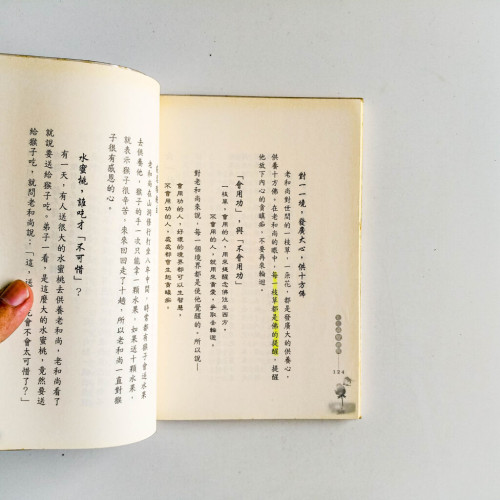 對一一境，發廣大心，供十方佛
老和尚對世間的一枝草，一朵花，都是發廣大的供養心，
供養十方佛。在老和尚的眼中，每一枝草都是佛的提醒，提醒
他放下內心的貪瞋痴，不要再來輪迴。
「會用功」，與「不會用功」
「一枝草，會用的人，用來提醒念佛往生西方，
不會用的人，就用來貪愛，爭取去輪迴。
對老和尚來說，每一個境界都是使他覺醒的，所以說—
會用功的人，好壞的境界都可以生智慧。
不會用功的人，處處都會生起貪瞋痴。
134
老和尚在山洞修行打坐八年中間，時常都有猴子會送水果
去供養他，猴子的手一次只能拿一顆水果，如果送十顆水果，
就表示猴子很辛苦，來來回回走了十趟，所以老和尚一直對猴
子很有感恩的心。
水蜜桃，誰吃才「不可惜」？
有一天，有人送很大的水蜜桃去供養老和尚，老和尚看了
就說要送給猴子。弟子一看，是這麼大的水蜜桃，竟然要送
給猴子吃，就問老和尚說：「這，送
會不會太可惜了？」